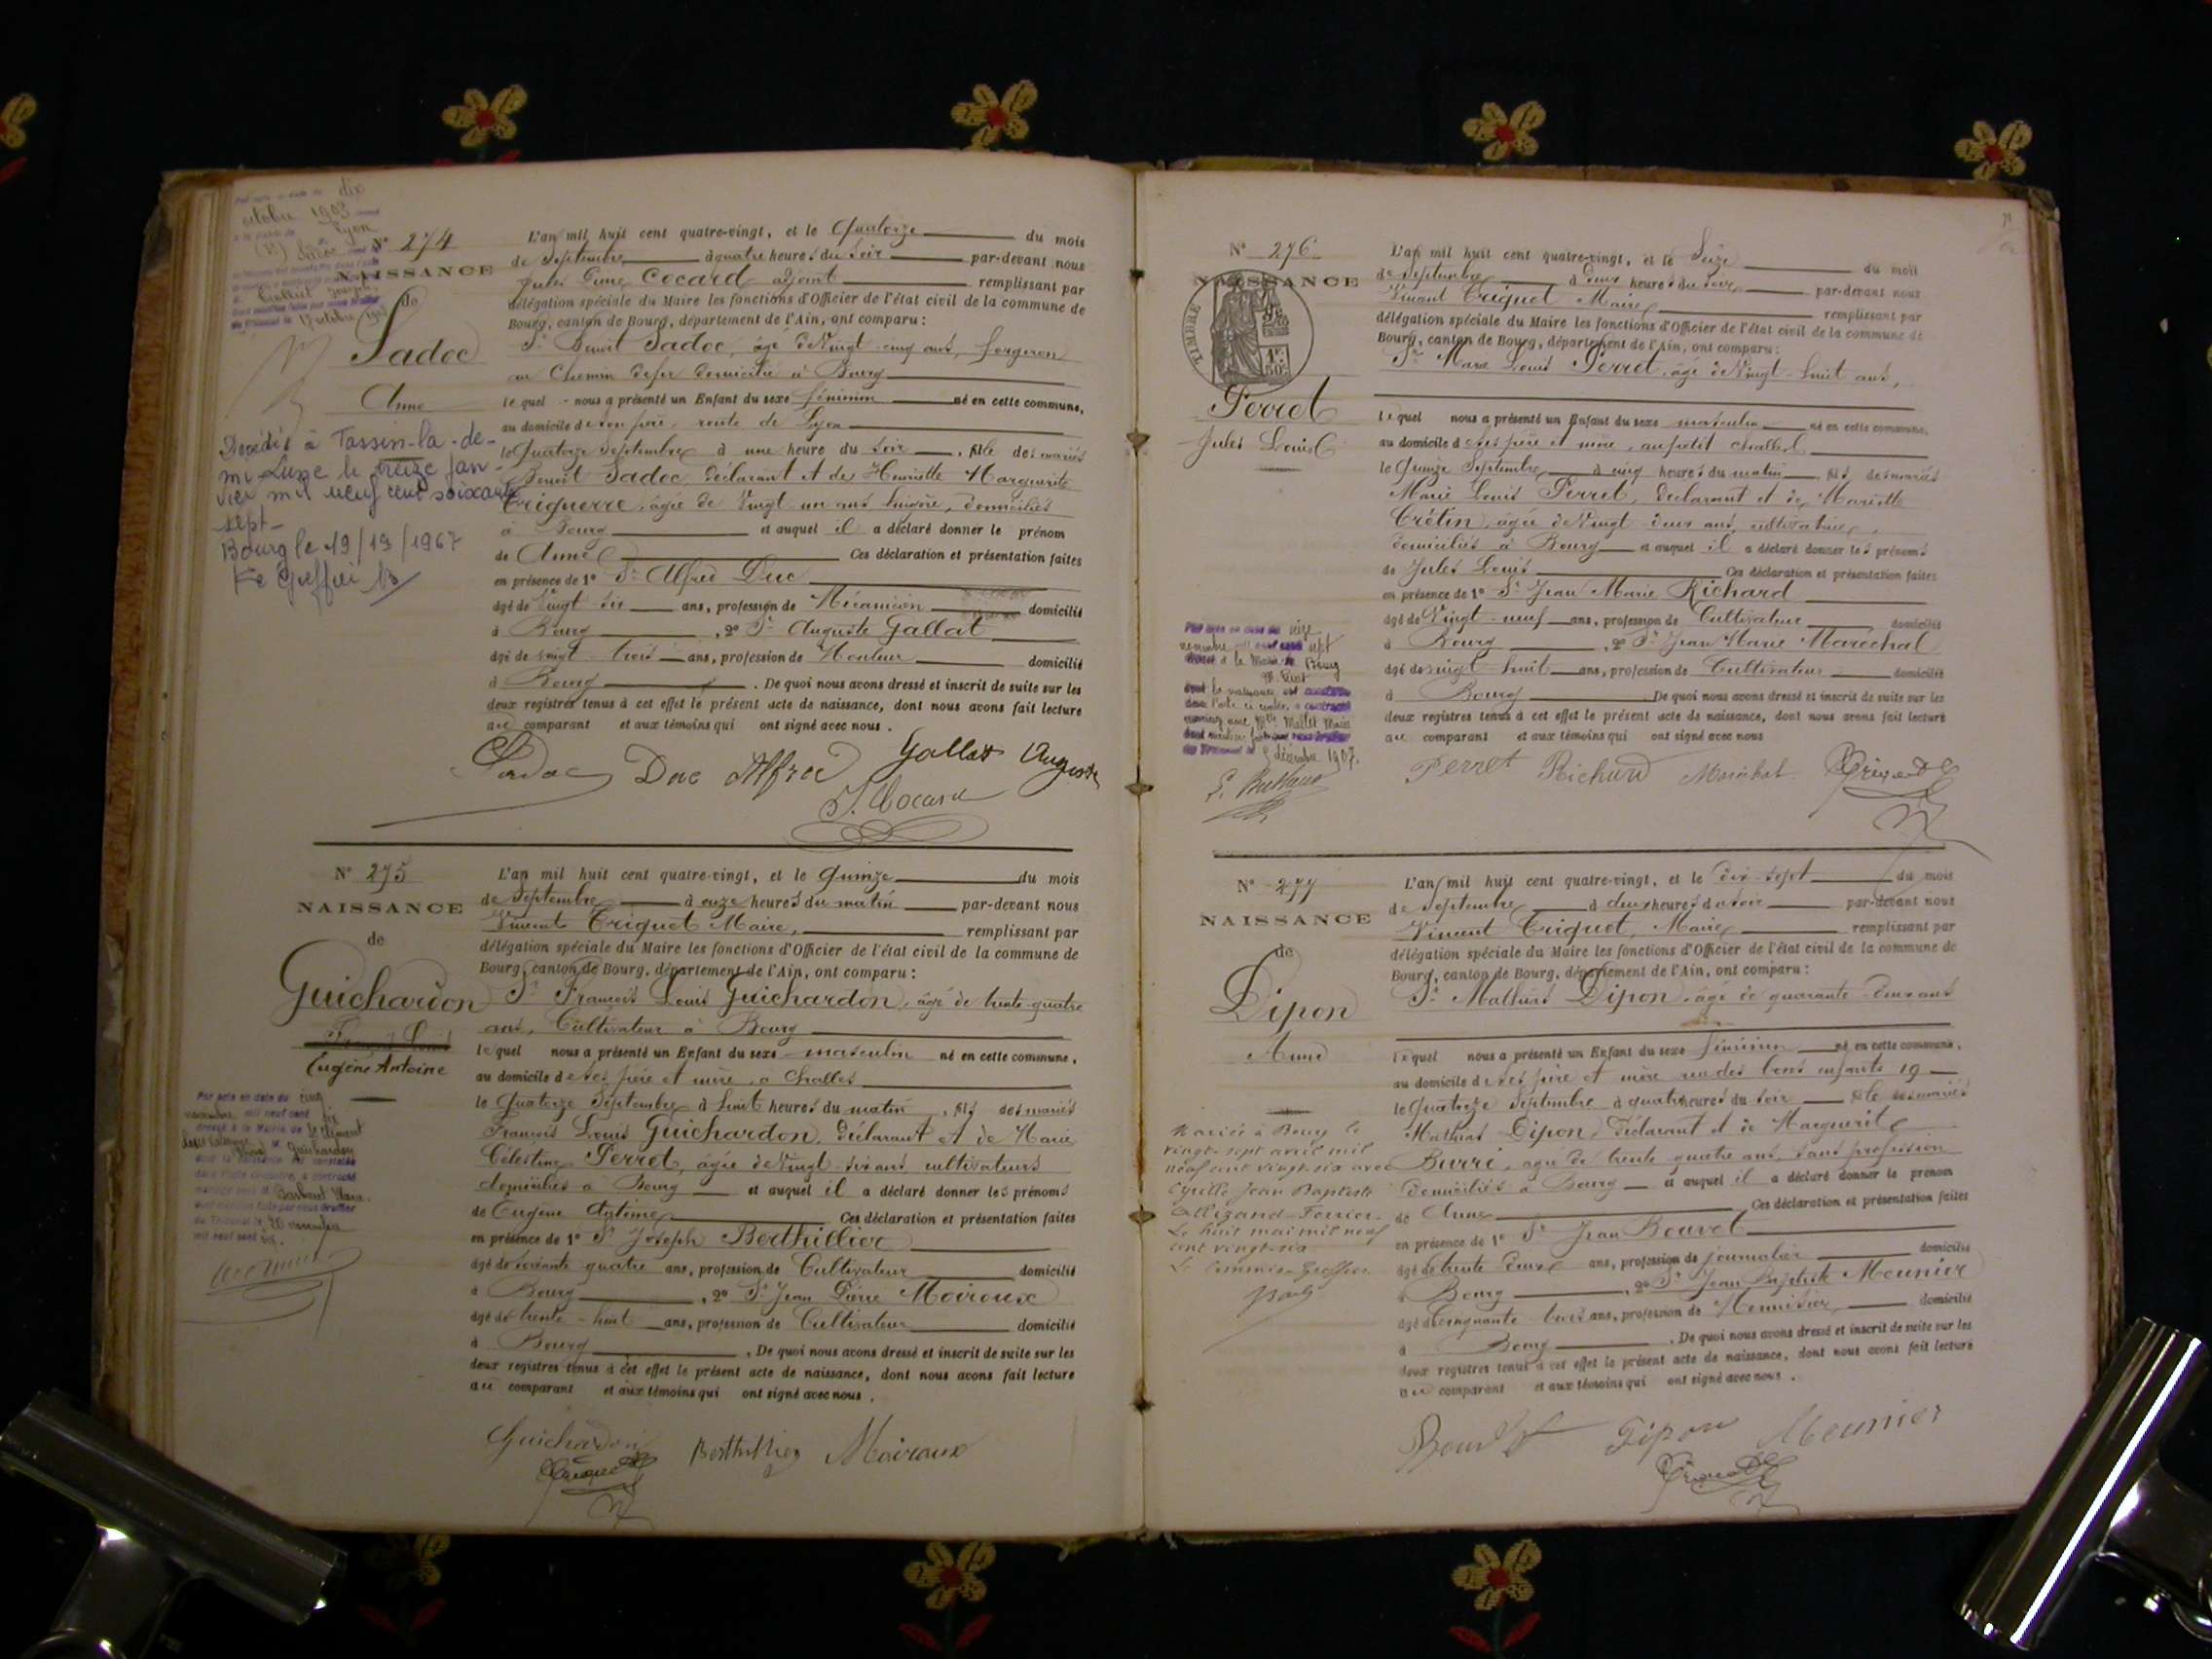 Par acte en date du dix
octobre 1903
à la mairie de Lyon
Sadoc
Calliet Joseph
17 octobre 1903
N° 274
NAISSANCE
de
Sadoc
Anne
Décédée à Tassin-la-de-
mi-Lune le treize jan-
vier mil neuf cent soixante
sept-
Bourg le 19/12/1967
Le Greffier
L'an mil huit cent quatre-vingt, et le Quatorze du mois
de Septembre à quatre heures du Soir par-devant nous
Jules Cocard adjoint remplissant par
délégation spéciale du Maire les fonctions d'Officier de l'état civil de la commune de
Bourg, canton de Bourg, département de l'Ain, ont comparu :
Sr Benoît Sadoc, âgé de Vingt-cinq ans, forgeron
au Chemin de fer domicilié à Bourg
lequel nous a présenté un Enfant du sexe féminin né en cette commune,
au domicile de son père, route de Lyon
le Quatorze Septembre à une heure du Soir, fille des mariés
Benoît Sadoc, déclarant et de Henriette Marguerite
Triguerre, âgée de Vingt un ans lingère, domiciliés
à Bourg et auquel il a déclaré donner le prénom
de Anne Ces déclaration et présentation faites
en présence de 1° Sr Alfred Duc
âgé de Vingt six ans, profession de Mécanicien domicilié
à Bourg, 2° Sr Auguste Gallat
âgé de vingt-trois ans, profession de Mouleur domicilié
à Bourg. De quoi nous avons dressé et inscrit de suite sur les
deux registres tenus à cet effet le présent acte de naissance, dont nous avons fait lecture
au comparant et aux témoins qui ont signé avec nous.
Sadoc Duc Alfred Gallat Auguste
J. Cocard
N° 275
NAISSANCE
de
Guichardon
François Louis
Eugène Antoine
Par acte en date du cinq
novembre mil neuf cent six
dressé à la Mairie de St Clément
M. Guichardon
dont la naissance est constatée
dans l'acte ci-contre, a contracté
mariage avec Marie
dont mention faite par nous Greffier
du Tribunal le 20 novembre
mil neuf cent six.
L'an mil huit cent quatre-vingt, et le Quinze du mois
de Septembre à onze heures du matin par-devant nous
Vincent Triquet Maire, remplissant par
délégation spéciale du Maire les fonctions d'Officier de l'état civil de la commune de
Bourg, canton de Bourg, département de l'Ain, ont comparu :
Sr François Louis Guichardon, âgé de trente-quatre
ans, Cultivateur à Bourg
lequel nous a présenté un Enfant du sexe masculin né en cette commune,
au domicile de ses père et mère, à Challes
le Quatorze Septembre à huit heures du matin, fils des mariés
François Louis Guichardon, déclarant et de Marie
Célestine Perret, âgée de Vingt-six ans cultivateurs
domiciliés à Bourg et auquel il a déclaré donner les prénoms
de Eugène Antoine Ces déclaration et présentation faites
en présence de 1° Sr Joseph Berthillier
âgé de soixante quatre ans, profession de Cultivateur domicilié
à Bourg, 2° Sr Jean Pierre Moiroux
âgé de trente-huit ans, profession de Cultivateur domicilié
à Bourg. De quoi nous avons dressé et inscrit de suite sur les
deux registres tenus à cet effet le présent acte de naissance, dont nous avons fait lecture
au comparant et aux témoins qui ont signé avec nous.
Guichardon Berthillier Moiroux
Triquet
N° 276
NAISSANCE
TIMBRE
Perret
Jules Louis
Par acte en date du seize
novembre mil neuf cent sept
dressé à la Mairie de Bourg
M. Perret
dont la naissance est constatée
dans l'acte ci-contre, a contracté
mariage avec Mlle Mallet Marie
dont mention faite par nous Greffier
du Tribunal le 5 décembre 1907.
L'an mil huit cent quatre-vingt, et le Seize du mois
de Septembre à deux heures du Soir par-devant nous
Vincent Triquet Maire remplissant par
délégation spéciale du Maire les fonctions d'Officier de l'état civil de la commune de
Bourg, canton de Bourg, département de l'Ain, ont comparu :
Sr Marie Louis Perret, âgé de Vingt-huit ans,
lequel nous a présenté un Enfant du sexe masculin né en cette commune,
au domicile de ses père et mère, au petit Challes
le Quinze Septembre à cinq heures du matin fils des mariés
Marie Louis Perret, déclarant et de Mariette
Crétin, âgée de Vingt-deux ans, cultivateurs,
domiciliés à Bourg et auquel il a déclaré donner les prénoms
de Jules Louis Ces déclaration et présentation faites
en présence de 1° Sr Jean Marie Richard
âgé de Vingt-neuf ans, profession de Cultivateur domicilié
à Bourg, 2° Sr Jean Marie Maréchal
âgé de vingt-huit ans, profession de Cultivateur domicilié
à Bourg. De quoi nous avons dressé et inscrit de suite sur les
deux registres tenus à cet effet le présent acte de naissance, dont nous avons fait lecture
au comparant et aux témoins qui ont signé avec nous
Perret Richard Maréchal Triquet
N° 277
NAISSANCE
de
Dipon
Anne
Mariée à Bourg le
vingt-sept avril mil
neuf cent vingt-six avec
Cyrille Jean Baptiste
Le huit mai mil neuf
cent vingt-six
Le Commis Greffier
L'an mil huit cent quatre-vingt, et le dix-sept du mois
de Septembre à deux heures du soir par-devant nous
Vincent Triquet, Maire remplissant par
délégation spéciale du Maire les fonctions d'Officier de l'état civil de la commune de
Bourg, canton de Bourg, département de l'Ain, ont comparu :
Sr Mathias Dipon, âgé de quarante-deux ans
lequel nous a présenté un Enfant du sexe féminin né en cette commune,
au domicile de ses père et mère rue des bons enfants 19
le Quatorze Septembre à quatre heures du soir fille des mariés
Mathias Dipon, déclarant et de Marguerite
Burri, âgée de trente quatre ans, sans profession
domiciliés à Bourg et auquel il a déclaré donner le prénom
de Anne Ces déclaration et présentation faites
en présence de 1° Sr Jean Bouvet
âgé de trente deux ans, profession de journalier domicilié
à Bourg, 2° Sr Jean Baptiste Meunier
âgé de cinquante-trois ans, profession de Menuisier domicilié
à Bourg. De quoi nous avons dressé et inscrit de suite sur les
deux registres tenus à cet effet le présent acte de naissance, dont nous avons fait lecture
au comparant et aux témoins qui ont signé avec nous.
Bouvet Dipon Meunier
Triquet